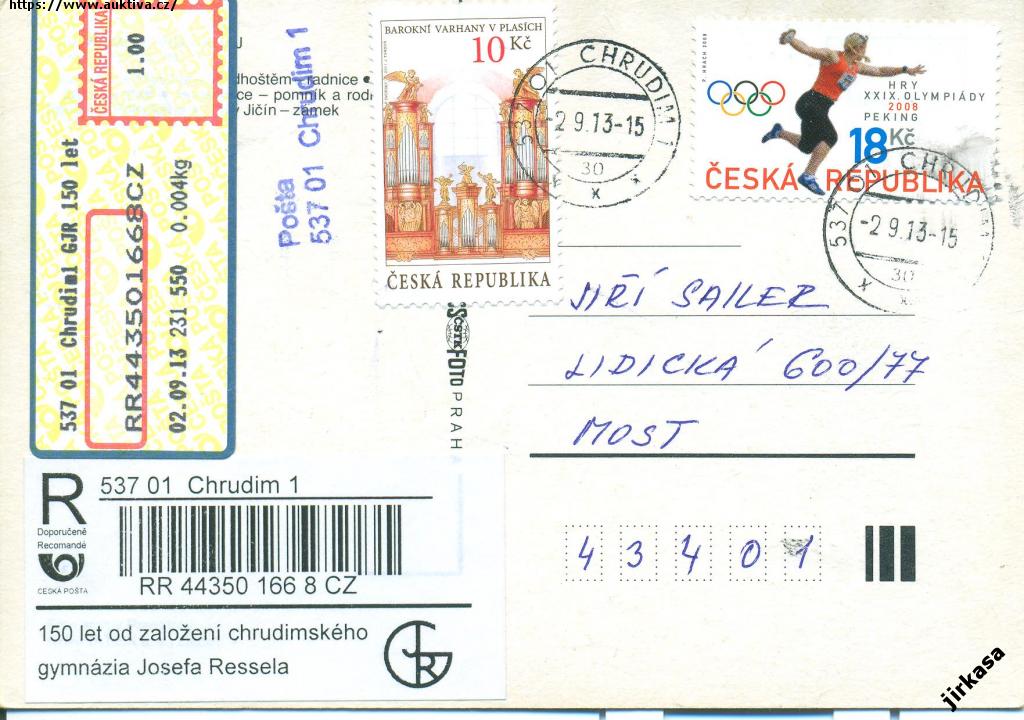 https://www.auktiva.cz/
ČESKÁ REPUBLIKA
1.00
537 01 Chrudim1 GJR 150 let
RR443501668CZ
02.09.13 231 550 0.004kg
dhoštěm – radnice
ce – pomník a rodi
Jičín – zámek
Pošta
537 01 Chrudim 1
BAROKNÍ VARHANY V PLASÍCH
10 Kč
ČESKÁ REPUBLIKA
537 01 CHRUDIM 1
-2.9.13-15
30
P. HRACH 2008
HRY
XXIX. OLYMPIÁDY
2008
PEKING
18 Kč
ČESKÁ REPUBLIKA
537 01 CHRUDIM
-2.9.13-15
30
JIŘÍ SAILER
LIDICKÁ 600/77
MOST
43401
ČSTK FOTO PRAH
R
Doporučeně
Recomandé
ČESKÁ POŠTA
537 01 Chrudim 1
RR 44350 166 8 CZ
150 let od založení chrudimského
gymnázia Josefa Ressela
GJR
jirkasa